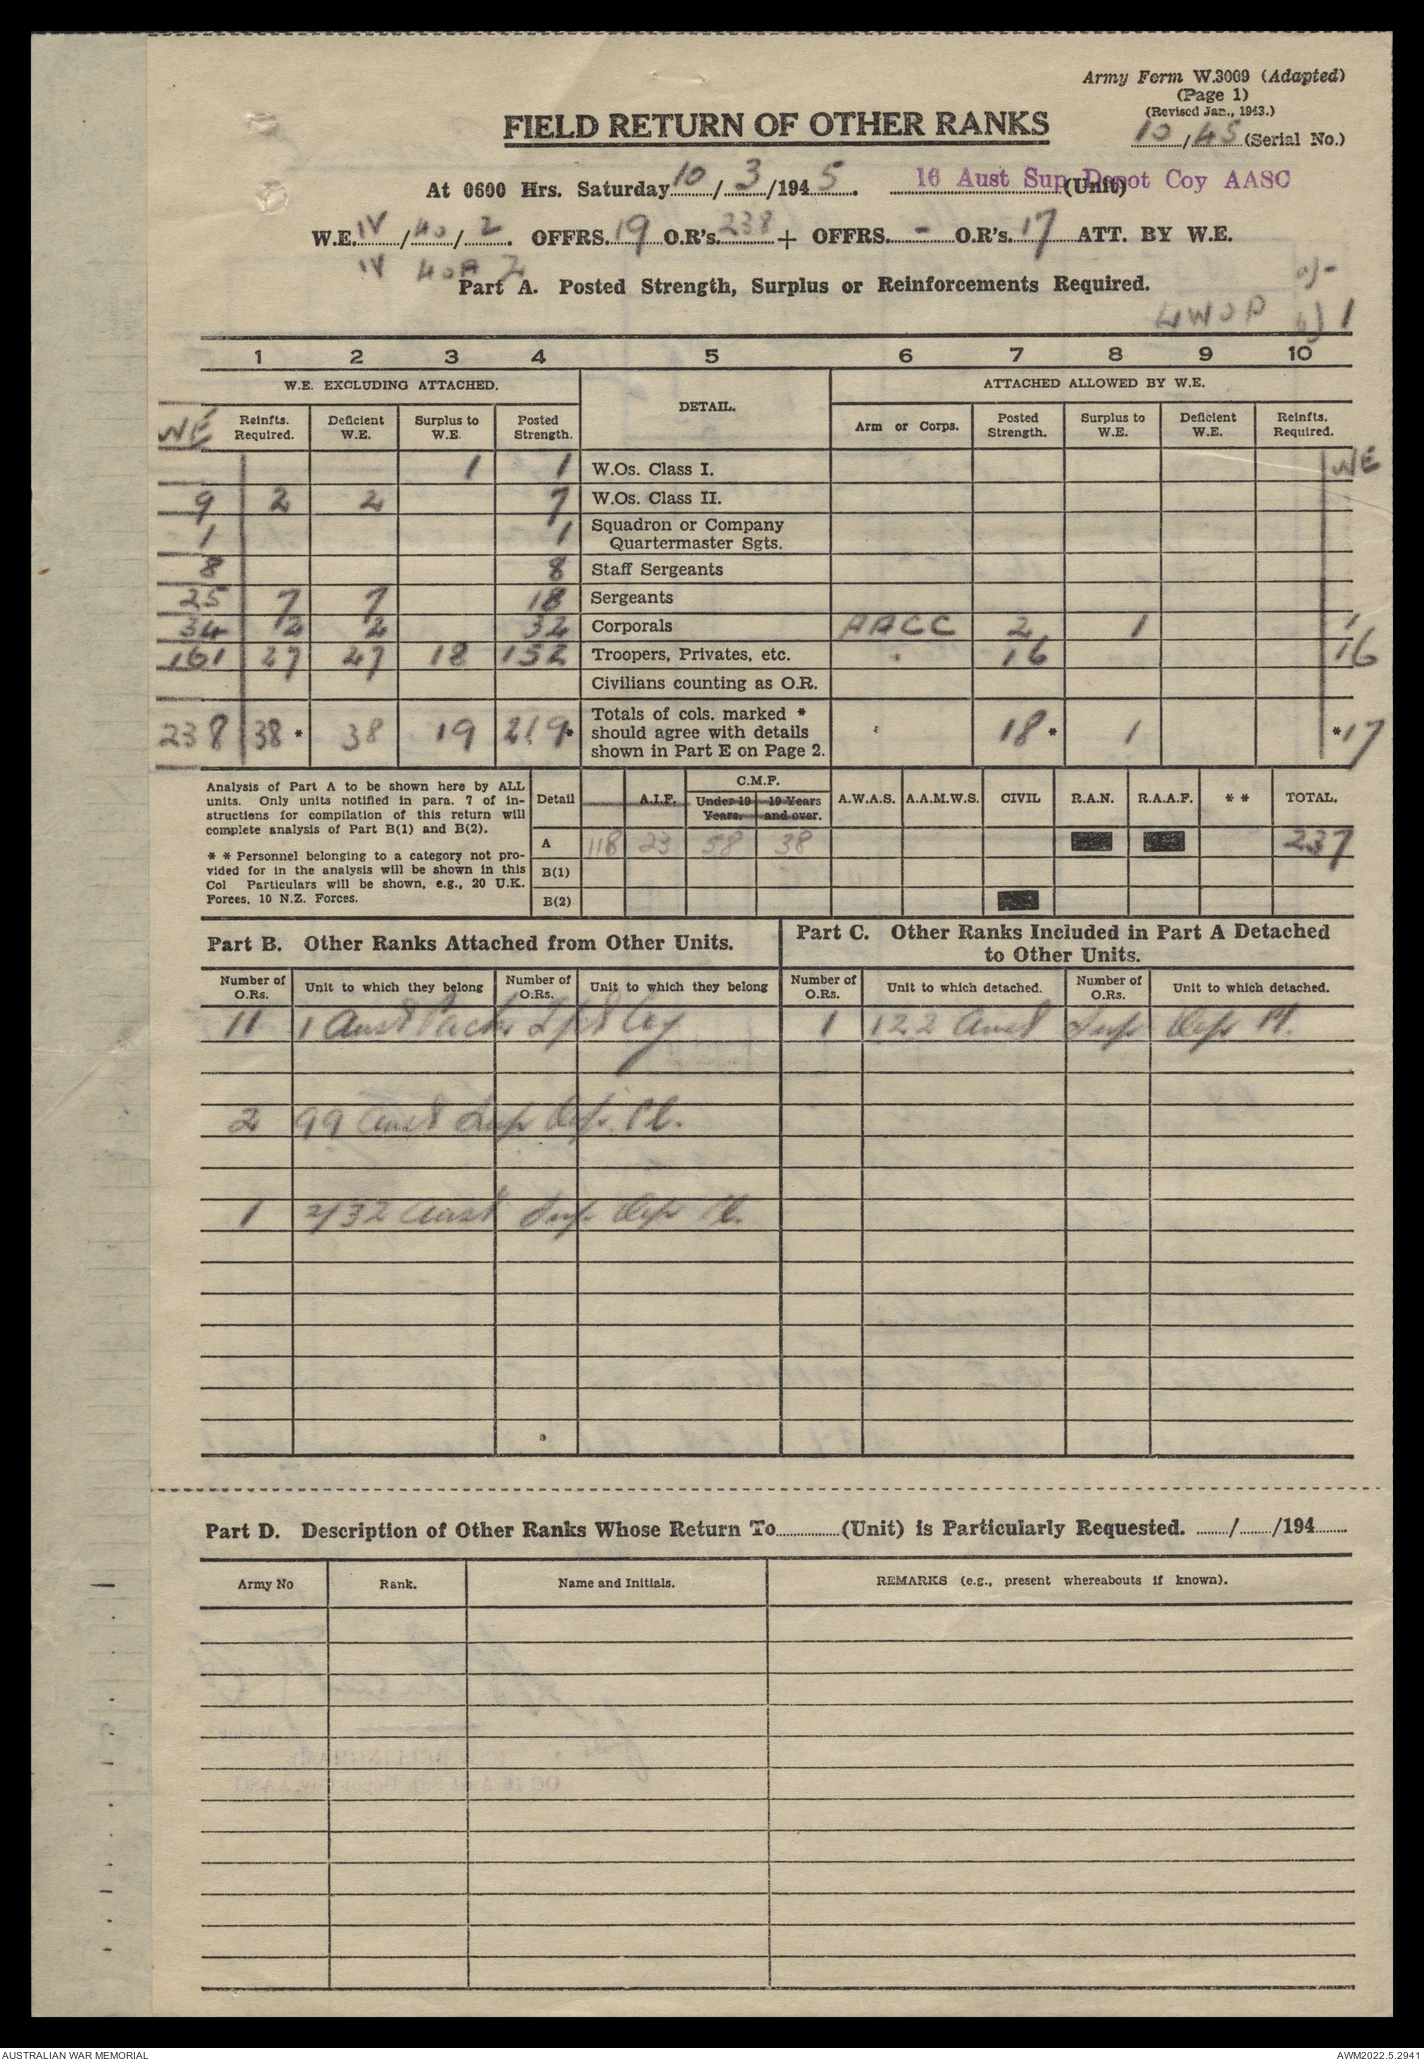 Army Form W.3009 (Adapted)
(Page 1)
(Revised Jan., 1943.)
10/45 (Serial No.)
FIELD RETURN OF OTHER RANKS
At 0600 Hrs. Saturday 10/3/1945. 16 Aust Sup Depot Coy AASC (Unit)
W.E. IV/40/2. OFFRS. 19 O.R's. 238 + OFFRS. - O.R's. 17 ATT. BY W.E.
IV 40A 2
Part A. Posted Strength, Surplus or Reinforcements Required.
a) -
LWOP b) 1
1 2 3 4 5 6 7 8 9 10
W.E. EXCLUDING ATTACHED. DETAIL. ATTACHED ALLOWED BY W.E.
WE Reinfts. Required. Deficient W.E. Surplus to W.E. Posted Strength. Arm or Corps. Posted Strength. Surplus to W.E. Deficient W.E. Reinfts. Required.
1 1 W.Os. Class I. WE
9 2 2 7 W.Os. Class II.
1 1 Squadron or Company
Quartermaster Sgts.
8 8 Staff Sergeants
25 7 7 18 Sergeants
34 2 2 32 Corporals AACC 2 1 1
161 27 27 18 152 Troopers, Privates, etc. 16 16
Civilians counting as O.R.
238 38* 38 19 219* Totals of cols. marked *
should agree with details
shown in Part E on Page 2. 18* 1 *17
Analysis of Part A to be shown here by ALL
units. Only units notified in para. 7 of in-
structions for compilation of this return will
complete analysis of Part B(1) and B(2).
* * Personnel belonging to a category not pro-
vided for in the analysis will be shown in this
Col Particulars will be shown, e.g., 20 U.K.
Forces, 10 N.Z. Forces.
Detail A.I.F. C.M.F. Under 19 Years. 19 Years and over. A.W.A.S. A.A.M.W.S. CIVIL R.A.N. R.A.A.F. * * TOTAL.
A 118 23 58 38 237
B(1)
B(2)
Part B. Other Ranks Attached from Other Units.
Part C. Other Ranks Included in Part A Detached
to Other Units.
Number of O.Rs. Unit to which they belong Number of O.Rs. Unit to which they belong Number of O.Rs. Unit to which detached. Number of O.Rs. Unit to which detached.
11 1 Aust Pack Tpt Coy 1 122 Aust Sup Dep Pl.
2 99 Aust Sup Dep. Pl.
1 2/32 Aust Sup Dep Pl.
Part D. Description of Other Ranks Whose Return To (Unit) is Particularly Requested. / /194
Army No Rank. Name and Initials. REMARKS (e.g., present whereabouts if known).
AUSTRALIAN WAR MEMORIAL
AWM2022.5.2941